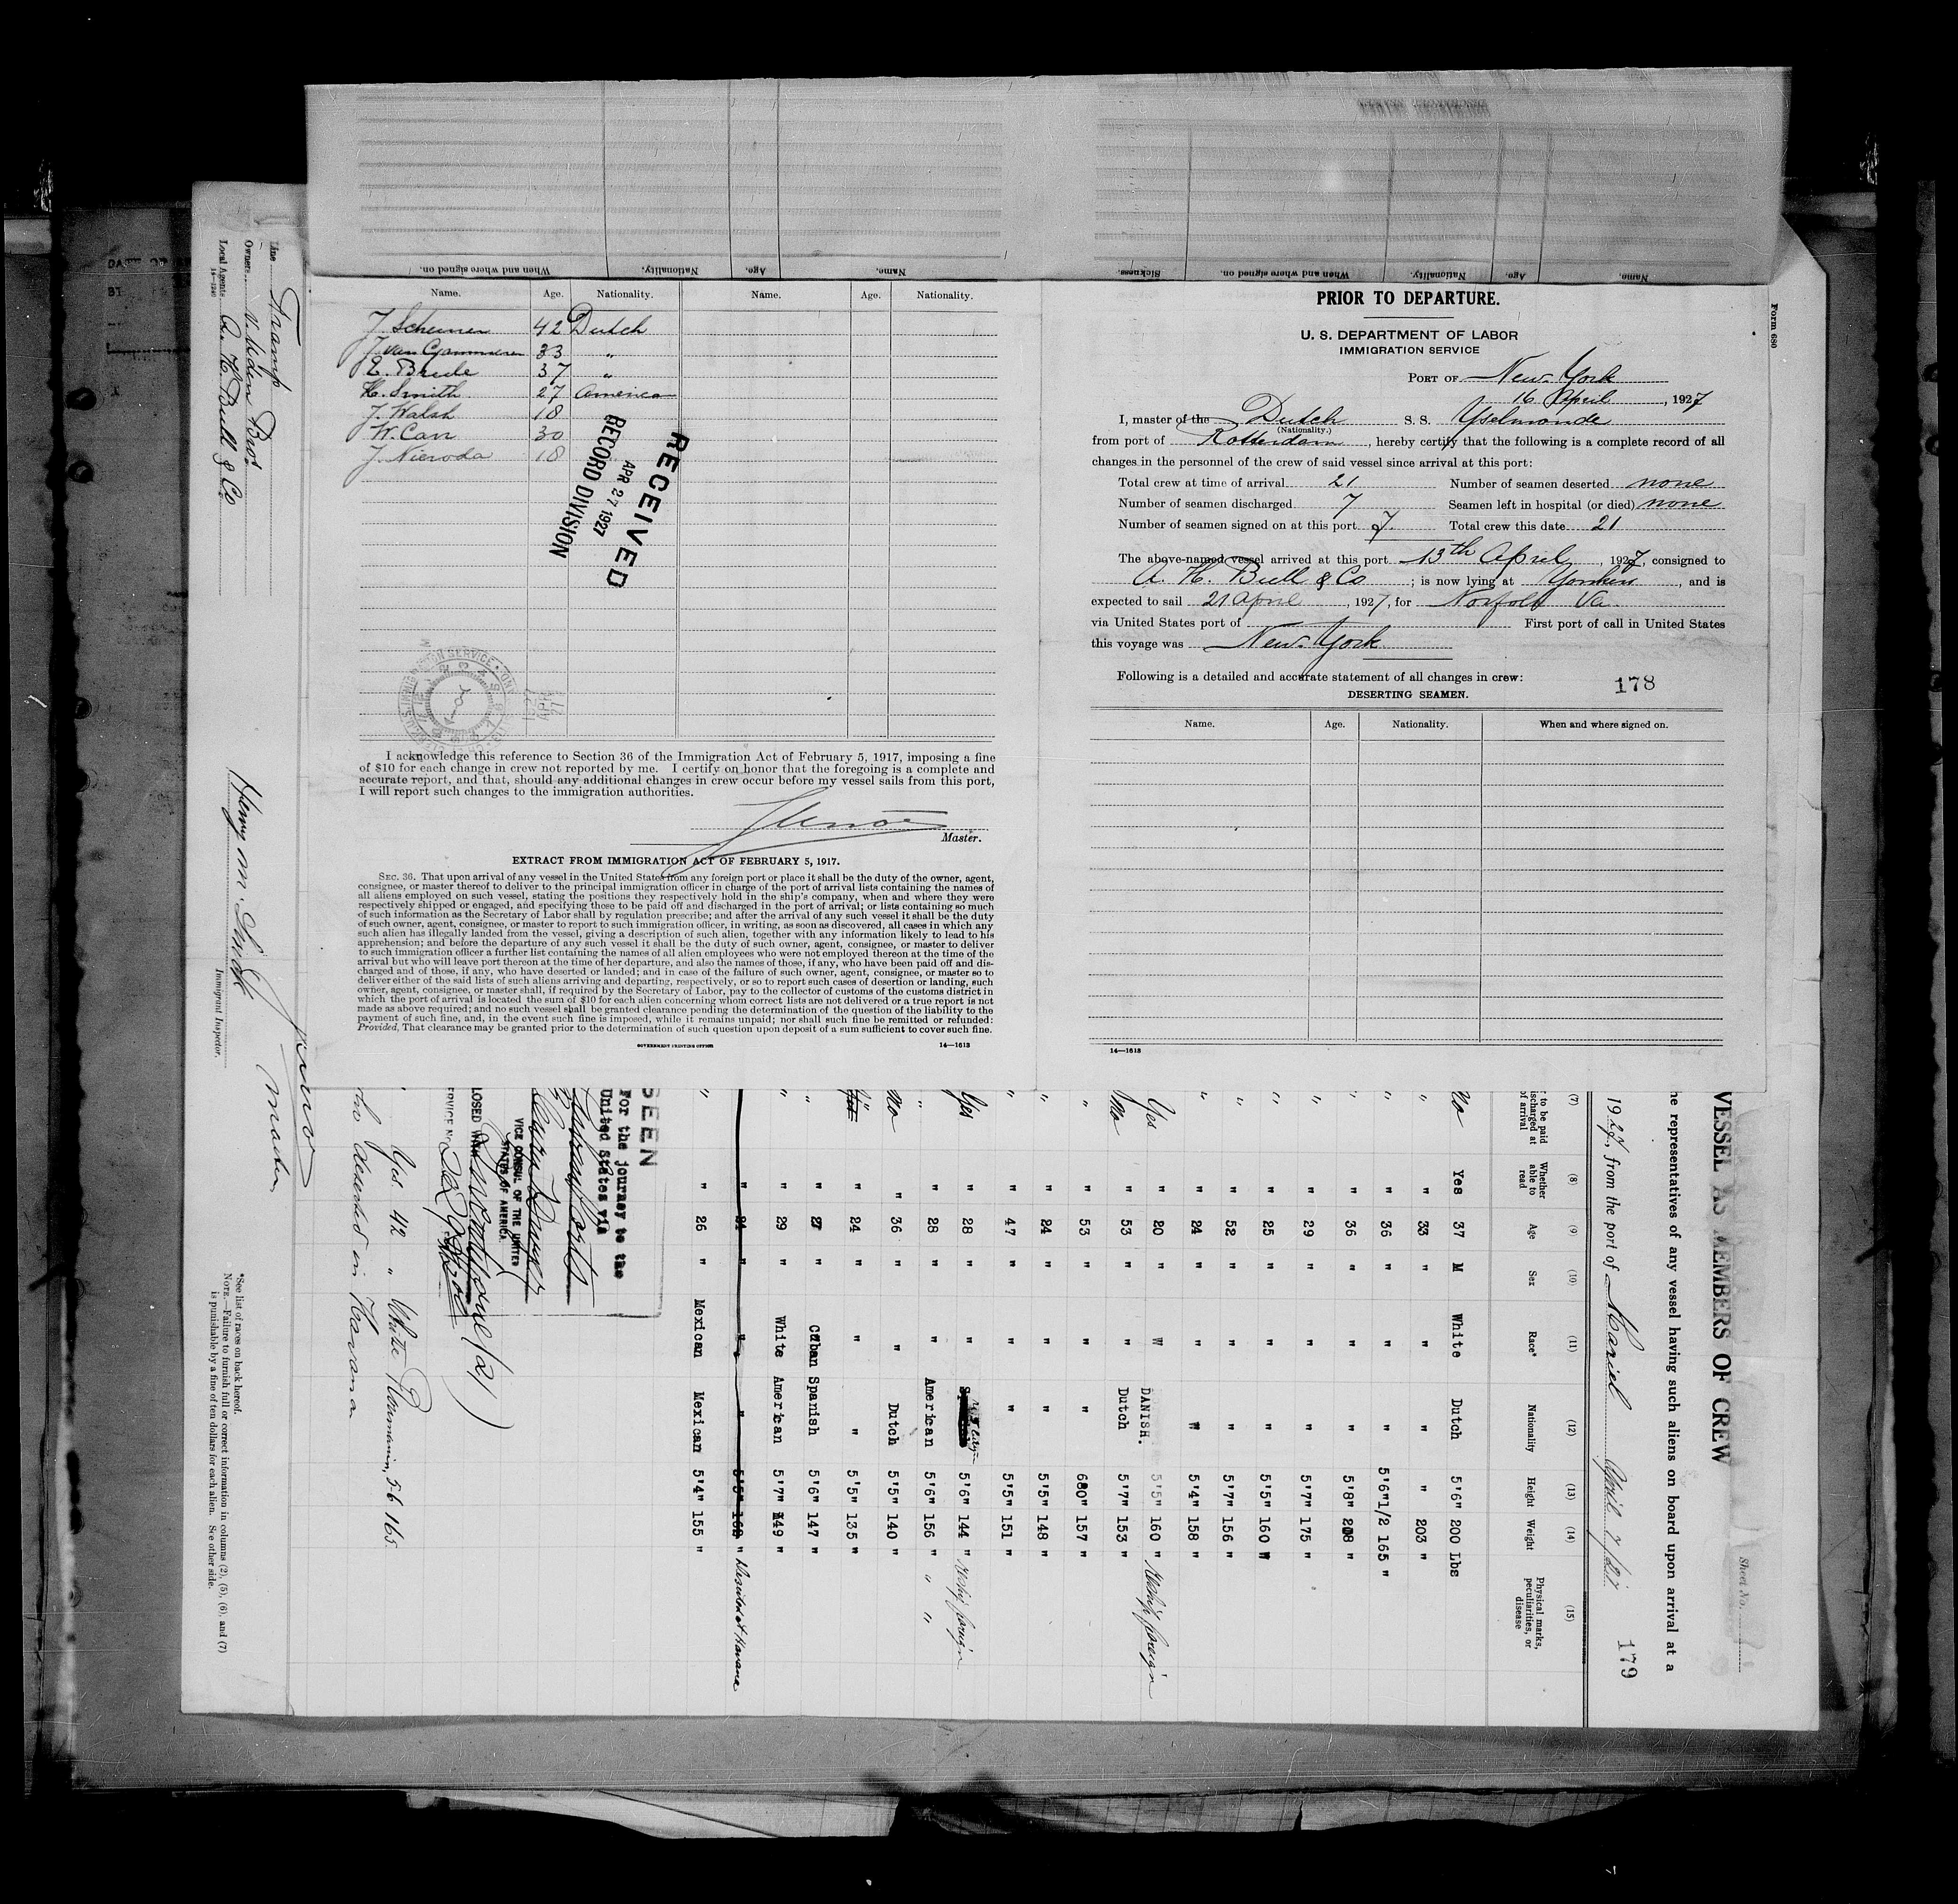 Name. Age. Nationality. Name. Age. Nationality.
J. Scheuner 42 Dutch
33 "
E. Brede 37 "
H. Smith 27 America
J. Walsh 18
W. Carr 30
J. Nieroda 18
RECEIVED
APR 27 1927
RECORD DIVISION
I acknowledge this reference to Section 36 of the Immigration Act of February 5, 1917, imposing a fine
of $10 for each change in crew not reported by me. I certify on honor that the foregoing is a complete and
accurate report, and that, should any additional changes in crew occur before my vessel sails from this port,
I will report such changes to the immigration authorities.
Master.
EXTRACT FROM IMMIGRATION ACT OF FEBRUARY 5, 1917.
SEC. 36. That upon arrival of any vessel in the United States from any foreign port or place it shall be the duty of the owner, agent,
consignee, or master thereof to deliver to the principal immigration officer in charge of the port of arrival lists containing the names of
all aliens employed on such vessel, stating the positions they respectively hold in the ship's company, when and where they were
respectively shipped or engaged, and specifying those to be paid off and discharged in the port of arrival; or lists containing so much
of such information as the Secretary of Labor shall by regulation prescribe; and after the arrival of any such vessel it shall be the duty
of such owner, agent, consignee, or master to report to such immigration officer, in writing, as soon as discovered, all cases in which any
such alien has illegally landed from the vessel, giving a description of such alien, together with any information likely to lead to his
apprehension; and before the departure of any such vessel it shall be the duty of such owner, agent, consignee, or master to deliver
to such immigration officer a further list containing the names of all alien employees who were not employed thereon at the time of the
arrival but who will leave port thereon at the time of her departure, and also the names of those, if any, who have been paid off and dis-
charged and of those, if any, who have deserted or landed; and in case of the failure of such owner, agent, consignee, or master so to
deliver either of the said lists of such aliens arriving and departing, respectively, or so to report such cases of desertion or landing, such
owner, agent, consignee, or master shall, if required by the Secretary of Labor, pay to the collector of customs of the customs district in
which the port of arrival is located the sum of $10 for each alien concerning whom correct lists are not delivered or a true report is not
made as above required; and no such vessel shall be granted clearance pending the determination of the question of the liability to the
payment of such fine, and, in the event such fine is imposed, while it remains unpaid; nor shall such fine be remitted or refunded:
Provided, That clearance may be granted prior to the determination of such question upon deposit of a sum sufficient to cover such fine.
GOVERNMENT PRINTING OFFICE 14—1613
Form 680
PRIOR TO DEPARTURE.
U. S. DEPARTMENT OF LABOR
IMMIGRATION SERVICE
PORT OF New-York
16 April, 1927
I, master of the Dutch S. S. Yselmonde
(Nationality.)
from port of Rotterdam, hereby certify that the following is a complete record of all
changes in the personnel of the crew of said vessel since arrival at this port:
Total crew at time of arrival 21 Number of seamen deserted none
Number of seamen discharged 7 Seamen left in hospital (or died) none
Number of seamen signed on at this port 7. Total crew this date 21
The above-named vessel arrived at this port 13th April, 1927, consigned to
A. H. Bull & Co; is now lying at Yonkers, and is
expected to sail 21 April, 1927, for Norfolk Va.
via United States port of First port of call in United States
this voyage was New-York
Following is a detailed and accurate statement of all changes in crew:
178
DESERTING SEAMEN.
Name. Age. Nationality. When and where signed on.
14—1613
Name. Age. Nationality. When and where signed on. Sickness.
Name. Age. Nationality. When and where signed on.
Sheet No.
VESSEL AS MEMBERS OF CREW
he representatives of any vessel having such aliens on board upon arrival at a
1927, from the port of Mariel April 7/27
179
(7) (8) (9) (10) (11) (12) (13) (14) (15)
to be paid discharged at of arrival Whether able to read Age Sex Race* Nationality Height Weight Physical marks, peculiarities, or disease
No Yes 37 M White Dutch 5'6" 200 Lbs
" " 33 " " " " 203 "
" " 36 " " " 5'6"1/2 165 "
" " 36 " " " 5'8" 208 "
" " 29 " " " 5'7" 175 "
" " 25 " " " 5'5" 160 "
" " 52 " " " 5'7" 156 "
" " 24 " " " 5'4" 158 "
Yes " 20 " " DANISH. 5'5" 160 " Reship foreign
No " 53 " " Dutch 5'7" 153 "
" " 53 " " " 157 "
" " 24 " " " 5'5" 148 "
" " 47 " " " 5'5" 151 "
Yes " 28 " " 5'6" 144 " Reship foreign
" " 28 " " American 5'6" 156 " " "
No " 36 " " Dutch 5'5" 140 "
" " 24 " " " 5'5" 135 "
" " 27 " Cuban Spanish 5'6" 147 "
" " 29 " White American 5'7" 149 "
" 21 " " " 5'5" 162 " Deserted at Havana
" " 26 " Mexican Mexican 5'4" 155 "
SEEN
For the journey to the
United States via
VICE CONSUL OF THE UNITED
STATES OF AMERICA.
Yes 42 " White 5'6 165.
deserted in Havana
Master
*See list of races on back hereof.
NOTE.—Failure to furnish full or correct information in columns (2), (5), (6), and (7)
is punishable by a fine of ten dollars for each alien. See other side.
Line Tramp
Owners V. Uden Bros.
Local Agents A. H. Bull & Co
14—1240
Henry M. Smith
Immigrant Inspector.